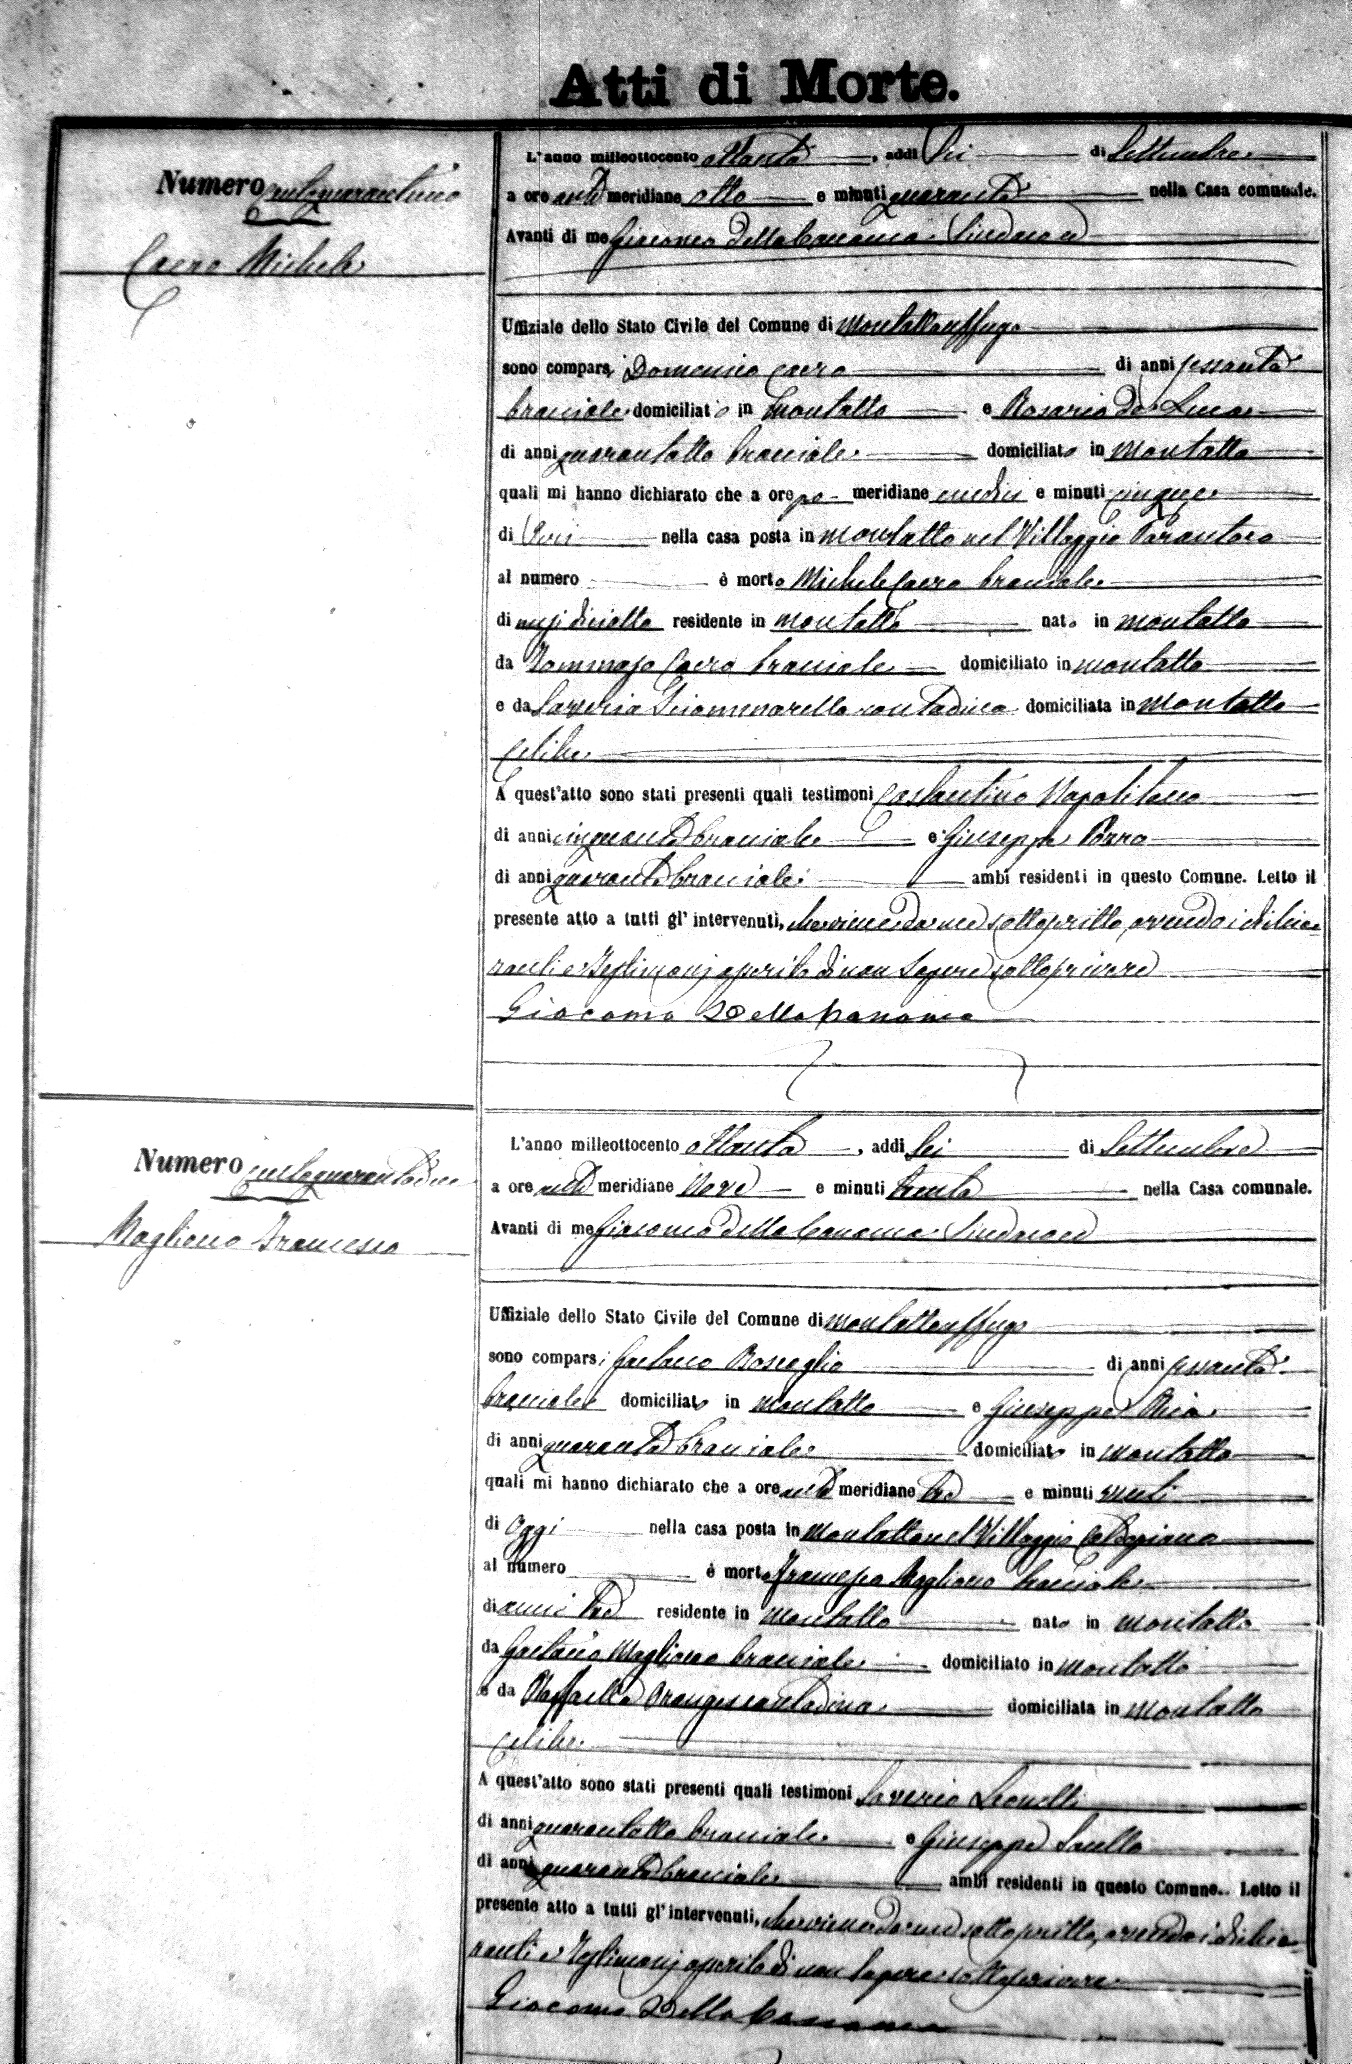 Atti di Morte.
Numero centoquarantuno
Caero Michele
L'anno milleottocento ottanta, addi Sei di Settembre
a ore anti meridiane otto e minuti quaranta nella Casa comunale.
Avanti di me Giacomo Della Canonica Sindaco
Uffiziale dello Stato Civile del Comune di Montaltouffugo
sono comparsi Domenico Caero di anni sessanta
bracciale domiciliato in Montalto e Rosario De Luca
di anni quarantotto bracciale domiciliato in Montalto
quali mi hanno dichiarato che a ore po meridiane undici e minuti cinque
di Ieri nella casa posta in Montalto nel Villaggio Parantoro
al numero è morto Michele Caero bracciale
di mesi diciotto residente in Montalto nato in Montalto
da Tommaso Caero bracciale domiciliato in Montalto
e da Saveria contadina domiciliata in Montalto
celibe
A quest'atto sono stati presenti quali testimoni Costantino Napolitano
di anni cinquanta bracciale e Giuseppe
di anni quaranta bracciale ambi residenti in questo Comune. Letto il
presente atto a tutti gl' intervenuti, da me sottoscritto, avendo i dichia-
ranti e Testimonj asserito di non sapere sottoscrivere
Giacomo Della Canonica
Numero centoquarantadue
Magliocco Francesco
L'anno milleottocento ottanta, addi Sei di Settembre
a ore anti meridiane Nove e minuti trenta nella Casa comunale.
Avanti di me Giacomo Della Canonica Sindaco
Uffiziale dello Stato Civile del Comune di Montaltouffugo
sono comparsi Gaetano di anni sessanta
bracciale domiciliato in Montalto e Giuseppe
di anni quaranta bracciale domiciliato in Montalto
quali mi hanno dichiarato che a ore anti meridiane tre e minuti venti
di Oggi nella casa posta in Montalto nel Villaggio
al numero è morto Francesco Magliocco bracciale
di anni tre residente in Montalto nato in Montalto
da Gaetano Magliocco bracciale domiciliato in Montalto
e da Raffaella contadina domiciliata in Montalto
celibe
A quest'atto sono stati presenti quali testimoni Saverio Leonetti
di anni quarantotto bracciale e Giuseppe
di anni quaranta bracciale ambi residenti in questo Comune. Letto il
presente atto a tutti gl' intervenuti, da me sottoscritto, avendo i dichia-
ranti e Testimonj asserito di non sapere sottoscrivere
Giacomo Della Canonica